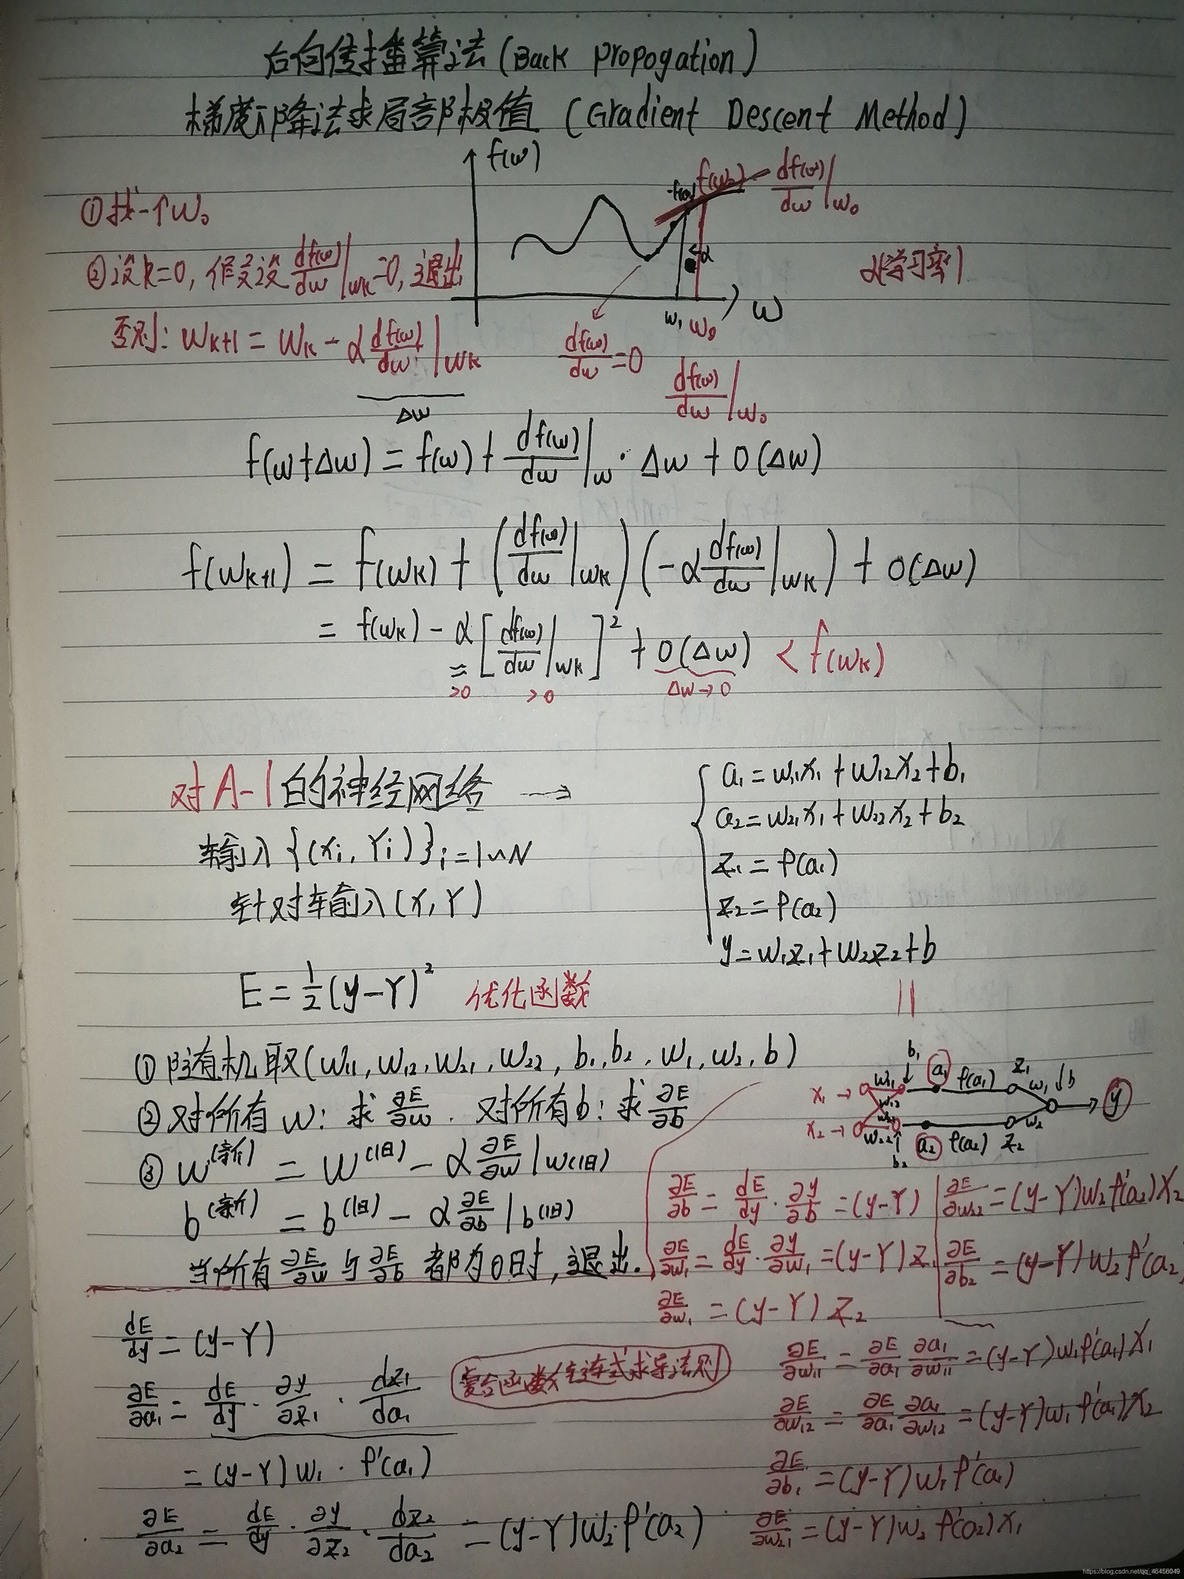 后向传播算法(Back Propogation)
梯度下降法求局部极值 (Gradient Descent Method)
f(w)
f(w₀) df(w)/dw|w₀
①找一个w₀
②设k=0, 假设 df(w)/dw|wk=0, 退出
α
α(学习率)
w₁ w₀ w
否则: wk+1 = wk - α df(w)/dw|wk
Δw
df(w)/dw=0
df(w)/dw|w₀
f(w+Δw) = f(w) + df(w)/dw|w · Δw + O(Δw)
f(wk+1) = f(wk) + (df(w)/dw|wk)(-α df(w)/dw|wk) + O(Δw)
= f(wk) - α[df(w)/dw|wk]² + O(Δw) < f(wk)
>0 >0 Δw→0
对A-1的神经网络 →
输入{(xi, Yi)}i=1~N
针对输入(X, Y)
a₁=w₁x₁+w₁₂x₂+b₁
a₂=w₂₁x₁+w₂₂x₂+b₂
z₁=φ(a₁)
z₂=φ(a₂)
y=w₁z₁+w₂z₂+b
E=½(y-Y)² 优化函数
①随机取(w₁₁, w₁₂, w₂₁, w₂₂, b₁, b₂, w₁, w₂, b)
②对所有w: 求∂E/∂w. 对所有b: 求∂E/∂b
③w(新) = w(旧) - α ∂E/∂w|w(旧)
b(新) = b(旧) - α ∂E/∂b|b(旧)
当所有∂E/∂w与∂E/∂b都为0时, 退出.
b₁ a₁ z₁
x₁→ w₁₁ φ(a₁) w₁ b
w₁₂ y
x₂→ w₂₂ a₂ φ(a₂) z₂ w₂
b₂
∂E/∂b = dE/dy · ∂y/∂b = (y-Y)
∂E/∂w₁ = dE/dy · ∂y/∂w₁ = (y-Y)z₁
∂E/∂w₁ = (y-Y)z₂
∂E/∂w₂₂ = (y-Y)w₂φ'(a₂)x₂
∂E/∂b₂ = (y-Y)w₂φ'(a₂)
dE/dy = (y-Y)
∂E/∂a₁ = dE/dy · ∂y/∂z₁ · dz₁/da₁
= (y-Y)w₁ · φ'(a₁)
∂E/∂a₂ = dE/dy · ∂y/∂z₂ · dz₂/da₂ = (y-Y)w₂φ'(a₂)
复合函数链式求导法则
∂E/∂w₁₁ = ∂E/∂a₁ ∂a₁/∂w₁₁ = (y-Y)w₁φ'(a₁)x₁
∂E/∂w₁₂ = ∂E/∂a₁ ∂a₁/∂w₁₂ = (y-Y)w₁φ'(a₁)x₂
∂E/∂b₁ = (y-Y)w₁φ'(a₁)
∂E/∂w₂₁ = (y-Y)w₂φ'(a₂)x₁
https://blog.csdn.net/qq_46456049